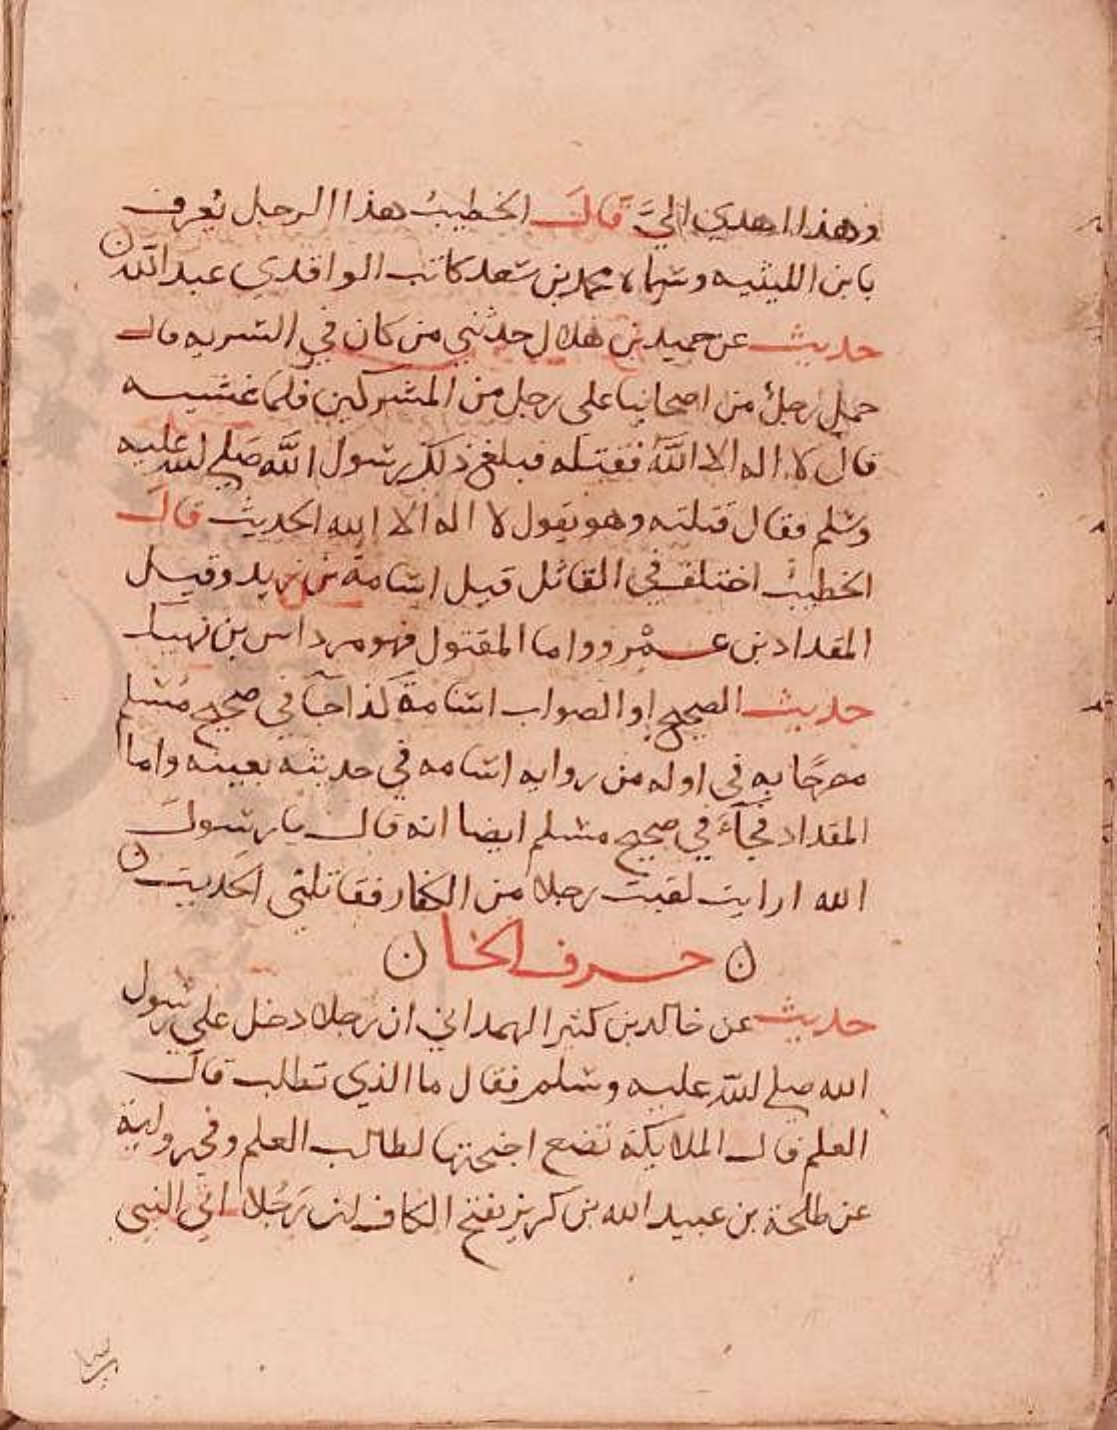 وهذا اهدي اليَّ قال الخطيبُ هذا الرجل يُعرف
بابن اللتبيه وسماه محمد بن سعد كاتب الواقدي عبد الله ن
حديث عن حميد بن هلال حدثني من كان في السريه قال
حمل رجلٌ من اصحابنا على رجل من المشركين فلما غشيه
قال لا اله الا اللَّه فقتله فبلغ ذلك رسول اللَّه صَلى الله عليه
وسَلم فقال قتلته وهو يقول لا اله الا الله الحديث قال
الخطيب اختلف في القاتل قيل اسَامة بن زيد وقيل
المقداد بن عمْرو واما المقتول فهو مرداس بن نهيك
حديث الصحيح او الصواب اسامة كذا جآ في صحيح مُسلم
مصرحًا به في اوله من روايه اسامه في حديثه بعينه واما
المقداد فجآء في صحيح مسلم ايضا انه قال يا رسول
الله ارايت لقيت رجلا من الكفار فقاتلني الحديث ن
ن حرف الخا ن
حديث عن خالد بن كثير الهمداني ان رجلا دخل على رسول
الله صلى الله عليه وسلم فقال ما الذي تطلب قال
العلم قال الملايكة تضع اجنحتها لطالب العلم وفي رواية
عن طلحة بن عبيد الله بن كريز بفتح الكاف ان رَجُلا اتي النبي